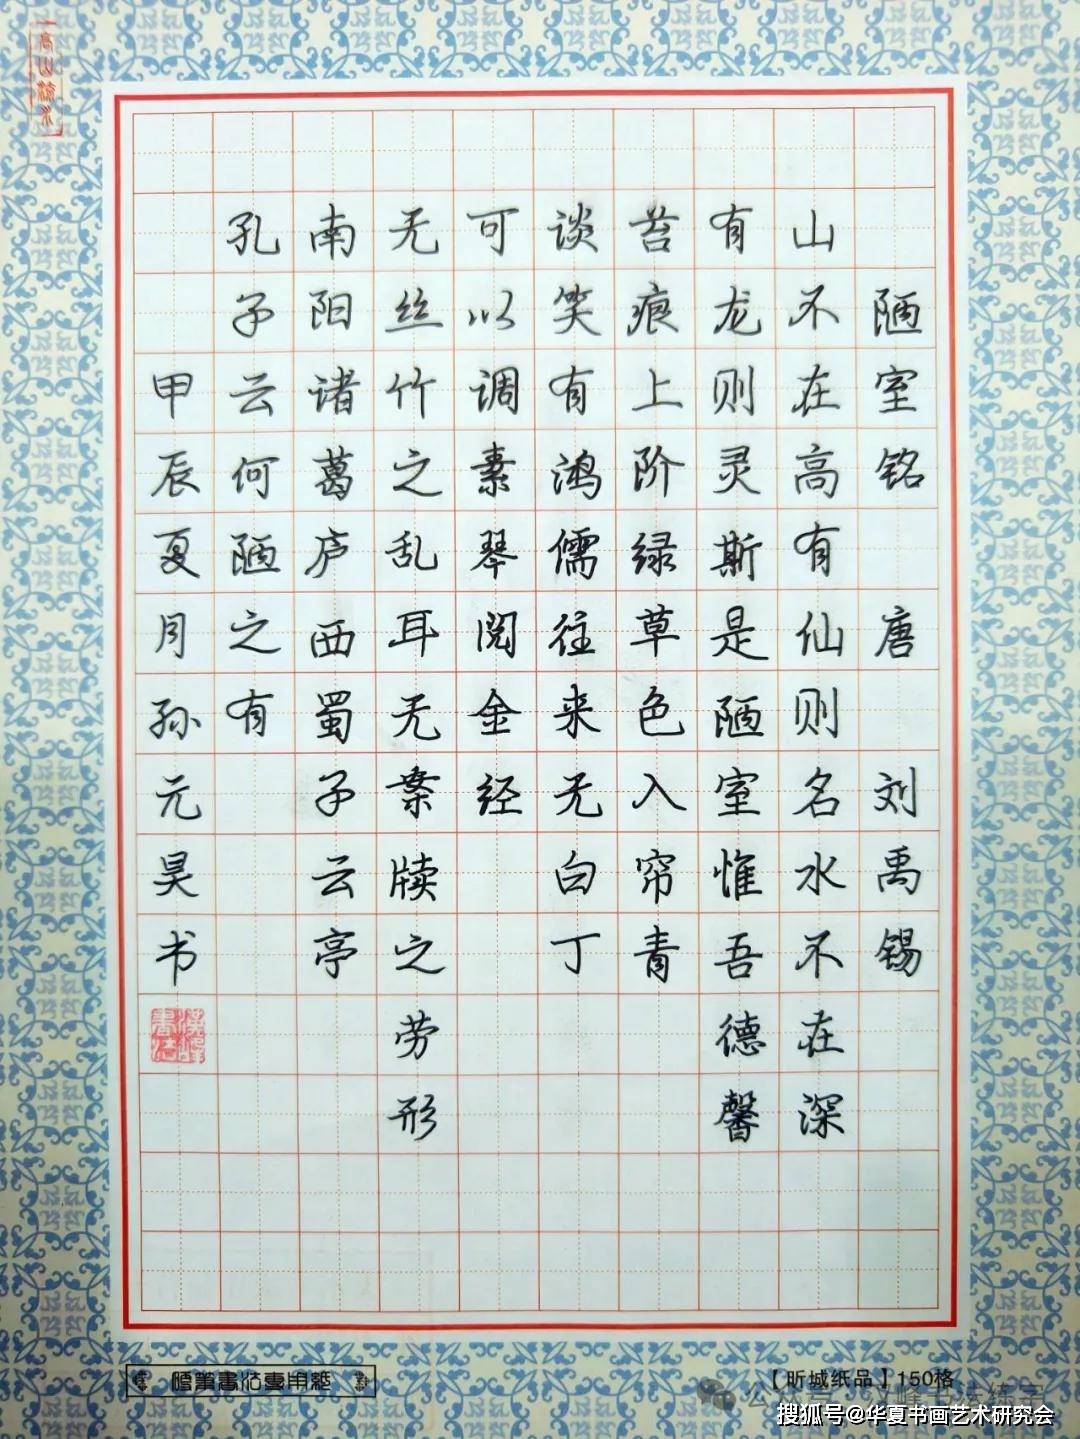 高山流水
陋室铭 唐 刘禹锡
山不在高有仙则名水不在深
有龙则灵斯是陋室惟吾德馨
苔痕上阶绿草色入帘青
谈笑有鸿儒往来无白丁
可以调素琴阅金经
无丝竹之乱耳无案牍之劳形
南阳诸葛庐西蜀子云亭
孔子云何陋之有
甲辰夏月孙元昊书
硬筆書法專用紙
【昕城纸品】150格
搜狐号@华夏书画艺术研究会